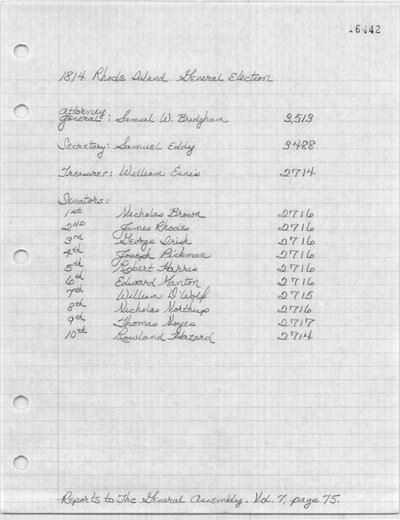 16442
1814 Rhode Island General Election
Attorney
General: Samuel W. Bridgham 3,513
Secretary: Samuel Eddy 3488
Treasurer: William Ennis 2714
Senators:
1st Nicholas Brown 2716
2ND James Rhodes 2716
3rd George Irish 2716
4th Joseph Peckman 2716
5th Robert Harris 2716
6th Edward Manton 2716
7th William D Wolf 2715
8th Nicholas Northup 2716
9th Thomas Noyes 2717
10th Rowland Hazard 2714
Reports to The General Assembly. Vol. 7, page 75.